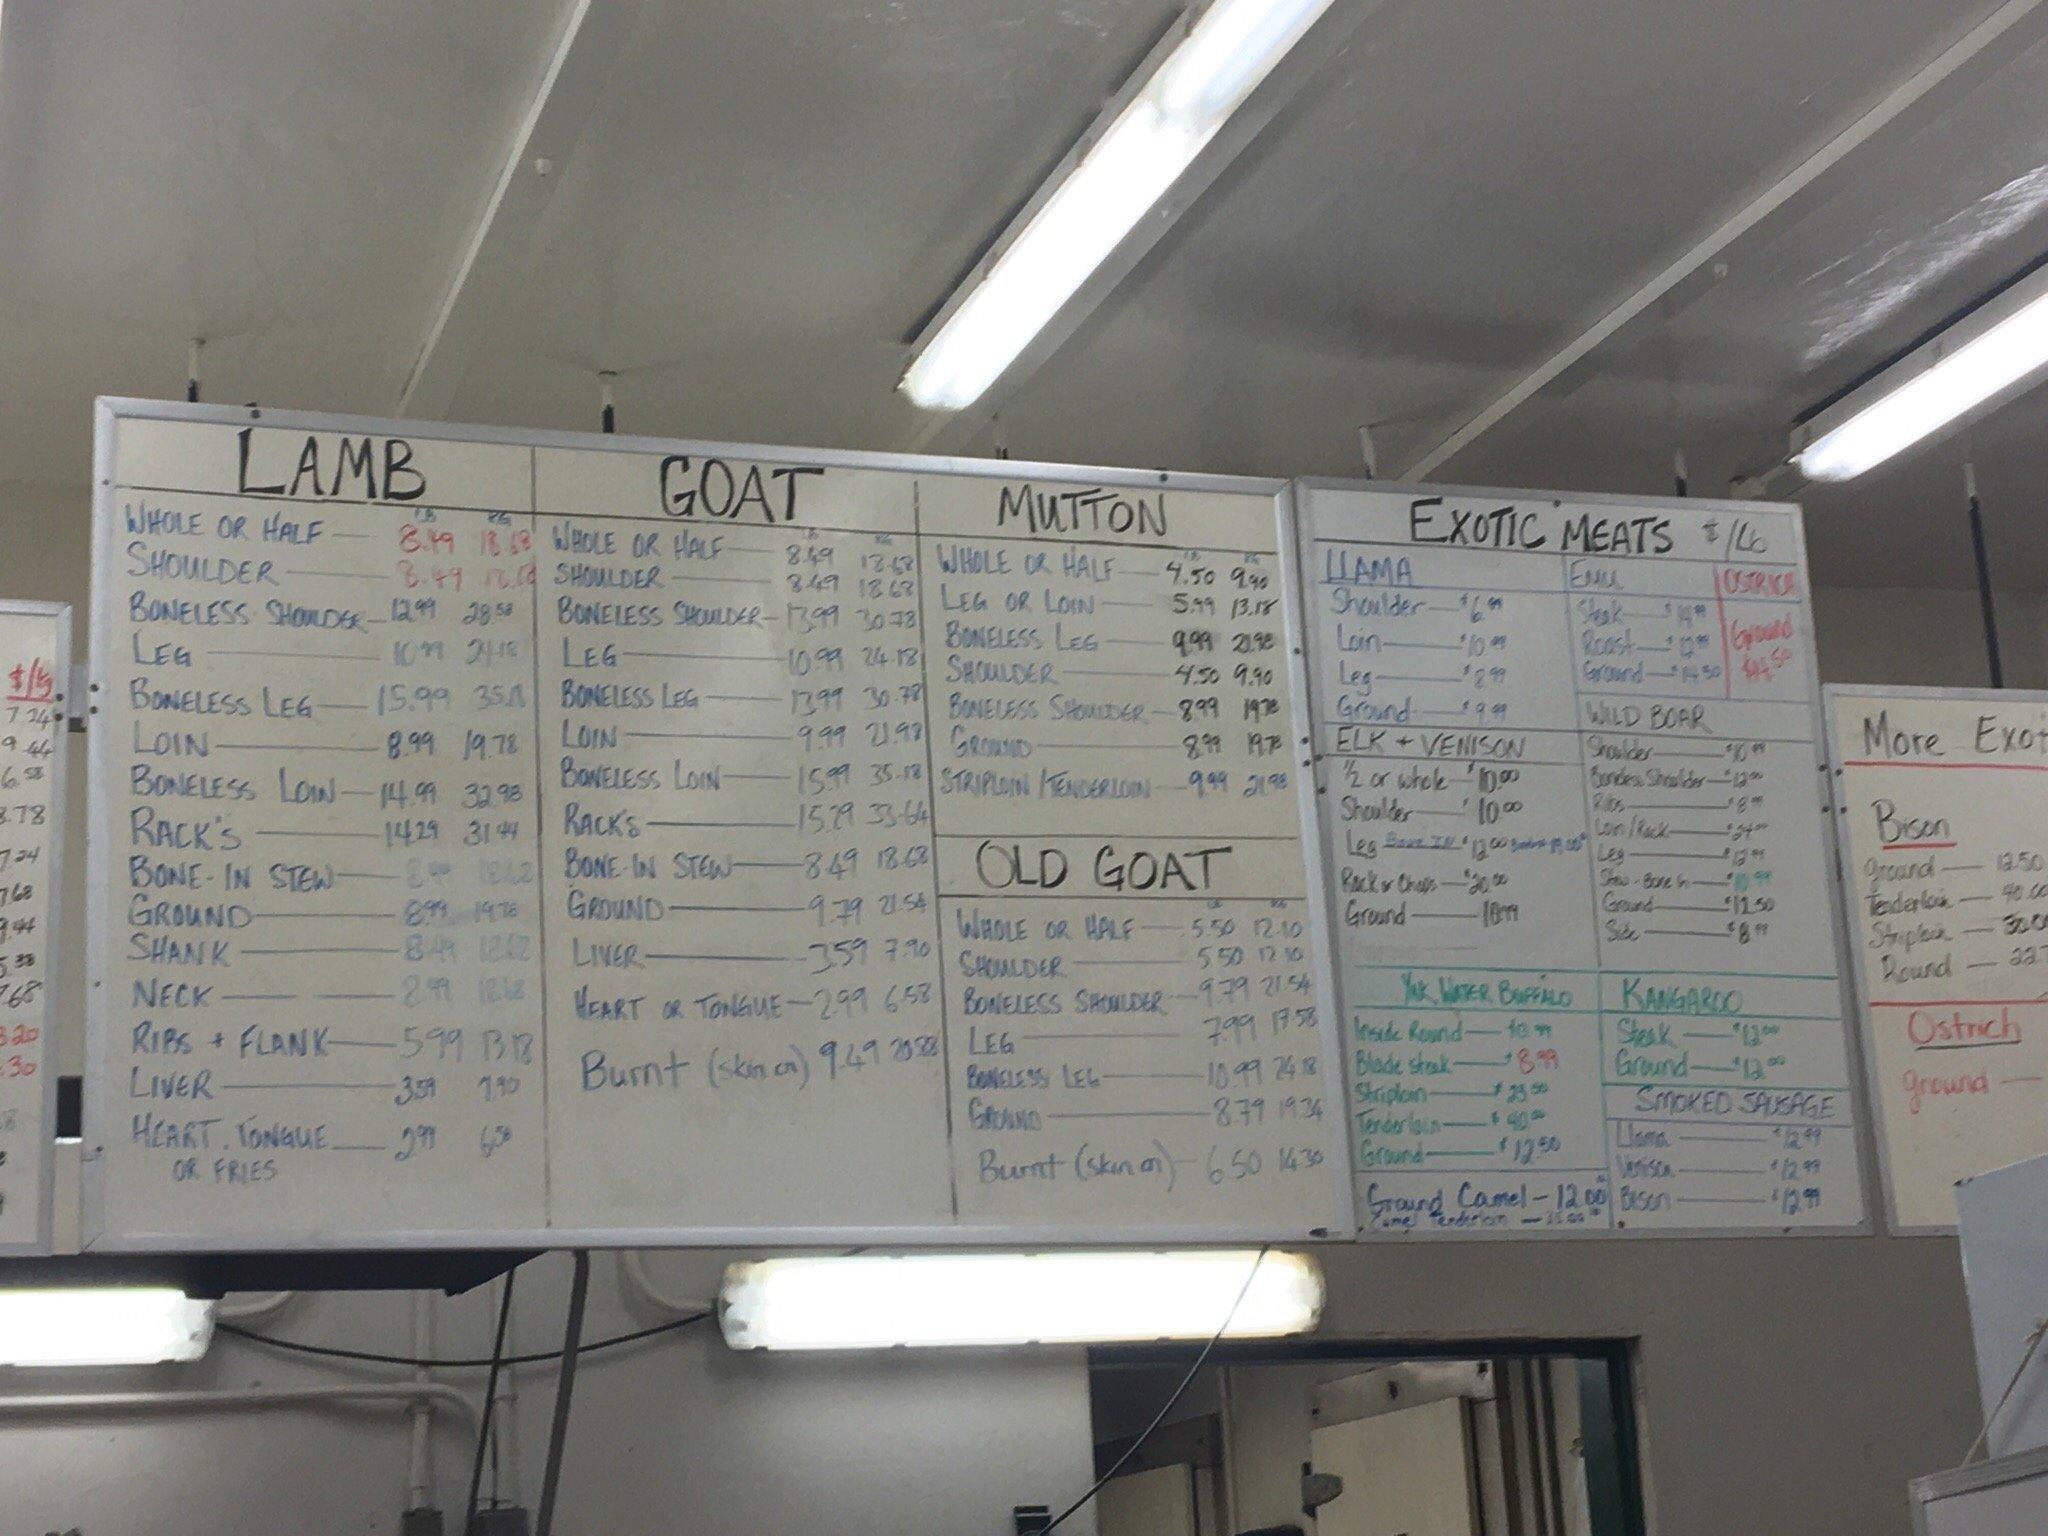 $/kg
7.24
9.44
6.58
3.78
7.24
7.68
9.44
5.38
7.68
3.20
.30
LAMB
LB KG
WHOLE OR HALF 8.49 18.68
SHOULDER 8.49 18.68
BONELESS SHOULDER 12.99 28.58
LEG 10.99 24.18
BONELESS LEG 15.99 35.18
LOIN 8.99 19.78
BONELESS LOIN 14.99 32.98
RACK'S 14.29 31.44
BONE-IN STEW
GROUND 8.99 19.78
SHANK 8.49
NECK
RIBS + FLANK 5.99 13.18
LIVER 3.59 7.90
HEART, TONGUE 2.99 6.58
OR FRIES
GOAT
LB KG
WHOLE OR HALF 8.49 18.68
SHOULDER 8.49 18.68
BONELESS SHOULDER 13.99 30.78
LEG 10.99 24.18
BONELESS LEG 13.99 30.78
LOIN 9.99 21.98
BONELESS LOIN 15.99 35.18
RACK'S 15.29 33.64
BONE-IN STEW 8.49 18.68
GROUND 9.79 21.54
LIVER 3.59 7.90
HEART OR TONGUE 2.99 6.58
Burnt (skin on) 9.49 20.88
MUTTON
LB KG
WHOLE OR HALF 4.50 9.90
LEG OR LOIN 5.99 13.18
BONELESS LEG 9.99 21.98
SHOULDER 4.50 9.90
BONELESS SHOULDER 8.99 19.78
GROUND 8.99 19.78
STRIPLOIN/TENDERLOIN 9.99 21.98
OLD GOAT
LB KG
WHOLE OR HALF 5.50 12.10
SHOULDER 5.50 12.10
BONELESS SHOULDER 9.79 21.54
LEG 7.99 17.58
BONELESS LEG 10.99 24.18
GROUND 8.79 19.34
Burnt (skin on) 6.50 14.30
EXOTIC MEATS $/Lb
LLAMA
Shoulder $6.99
Loin $10.99
Leg $8.99
Ground $9.99
EMU
Steak
Roast $12.99
Ground $14.50
OSTRICH
Ground
$14.50
ELK + VENISON
1/2 or whole $10.00
Shoulder $10.00
Leg Bone IN $12.00
Rack or Chops $20.00
Ground 10.99
WILD BOAR
Shoulder $10.99
Boneless Shoulder $12.00
Ribs $8.99
Loin/Rack $24.00
Leg $12.99
Stew-Bone In $10.99
Ground $12.50
Side $8.99
YAK, WATER BUFFALO
Inside Round
Blade Steak $8.99
Striploin $25.50
Tenderloin $40.00
Ground $12.50
KANGAROO
Steak $12.00
Ground $12.00
SMOKED SAUSAGE
Llama $12.99
Venison $12.99
Bison $12.99
Ground Camel - 12.00
Camel Tenderloin - 35.00
More Exot
Bison
Ground 12.50
Tenderloin 40.00
Striploin 30.00
Round 22.
Ostrich
ground